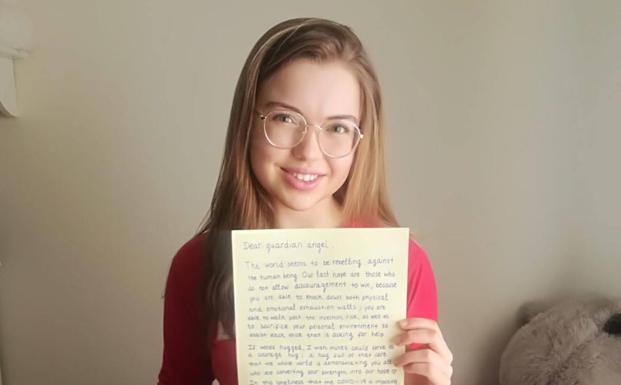 Dear guardian angel,
The world seems to be revelling against
the human being. Our last hope are those who
do not allow discouragement to win, because
you are able to knock down both physical
and emotional exhaustion walls; you are
able to walk past the invention, rise, as well as
to sacrifice your personal environment to
each voice that is asking for help.
If words hugged, I wish mines could serve as
a courage hug: a hug out of the care
that the whole world is you all
who are converting your strength into our hope
In the loneliness that the COVID-19 is